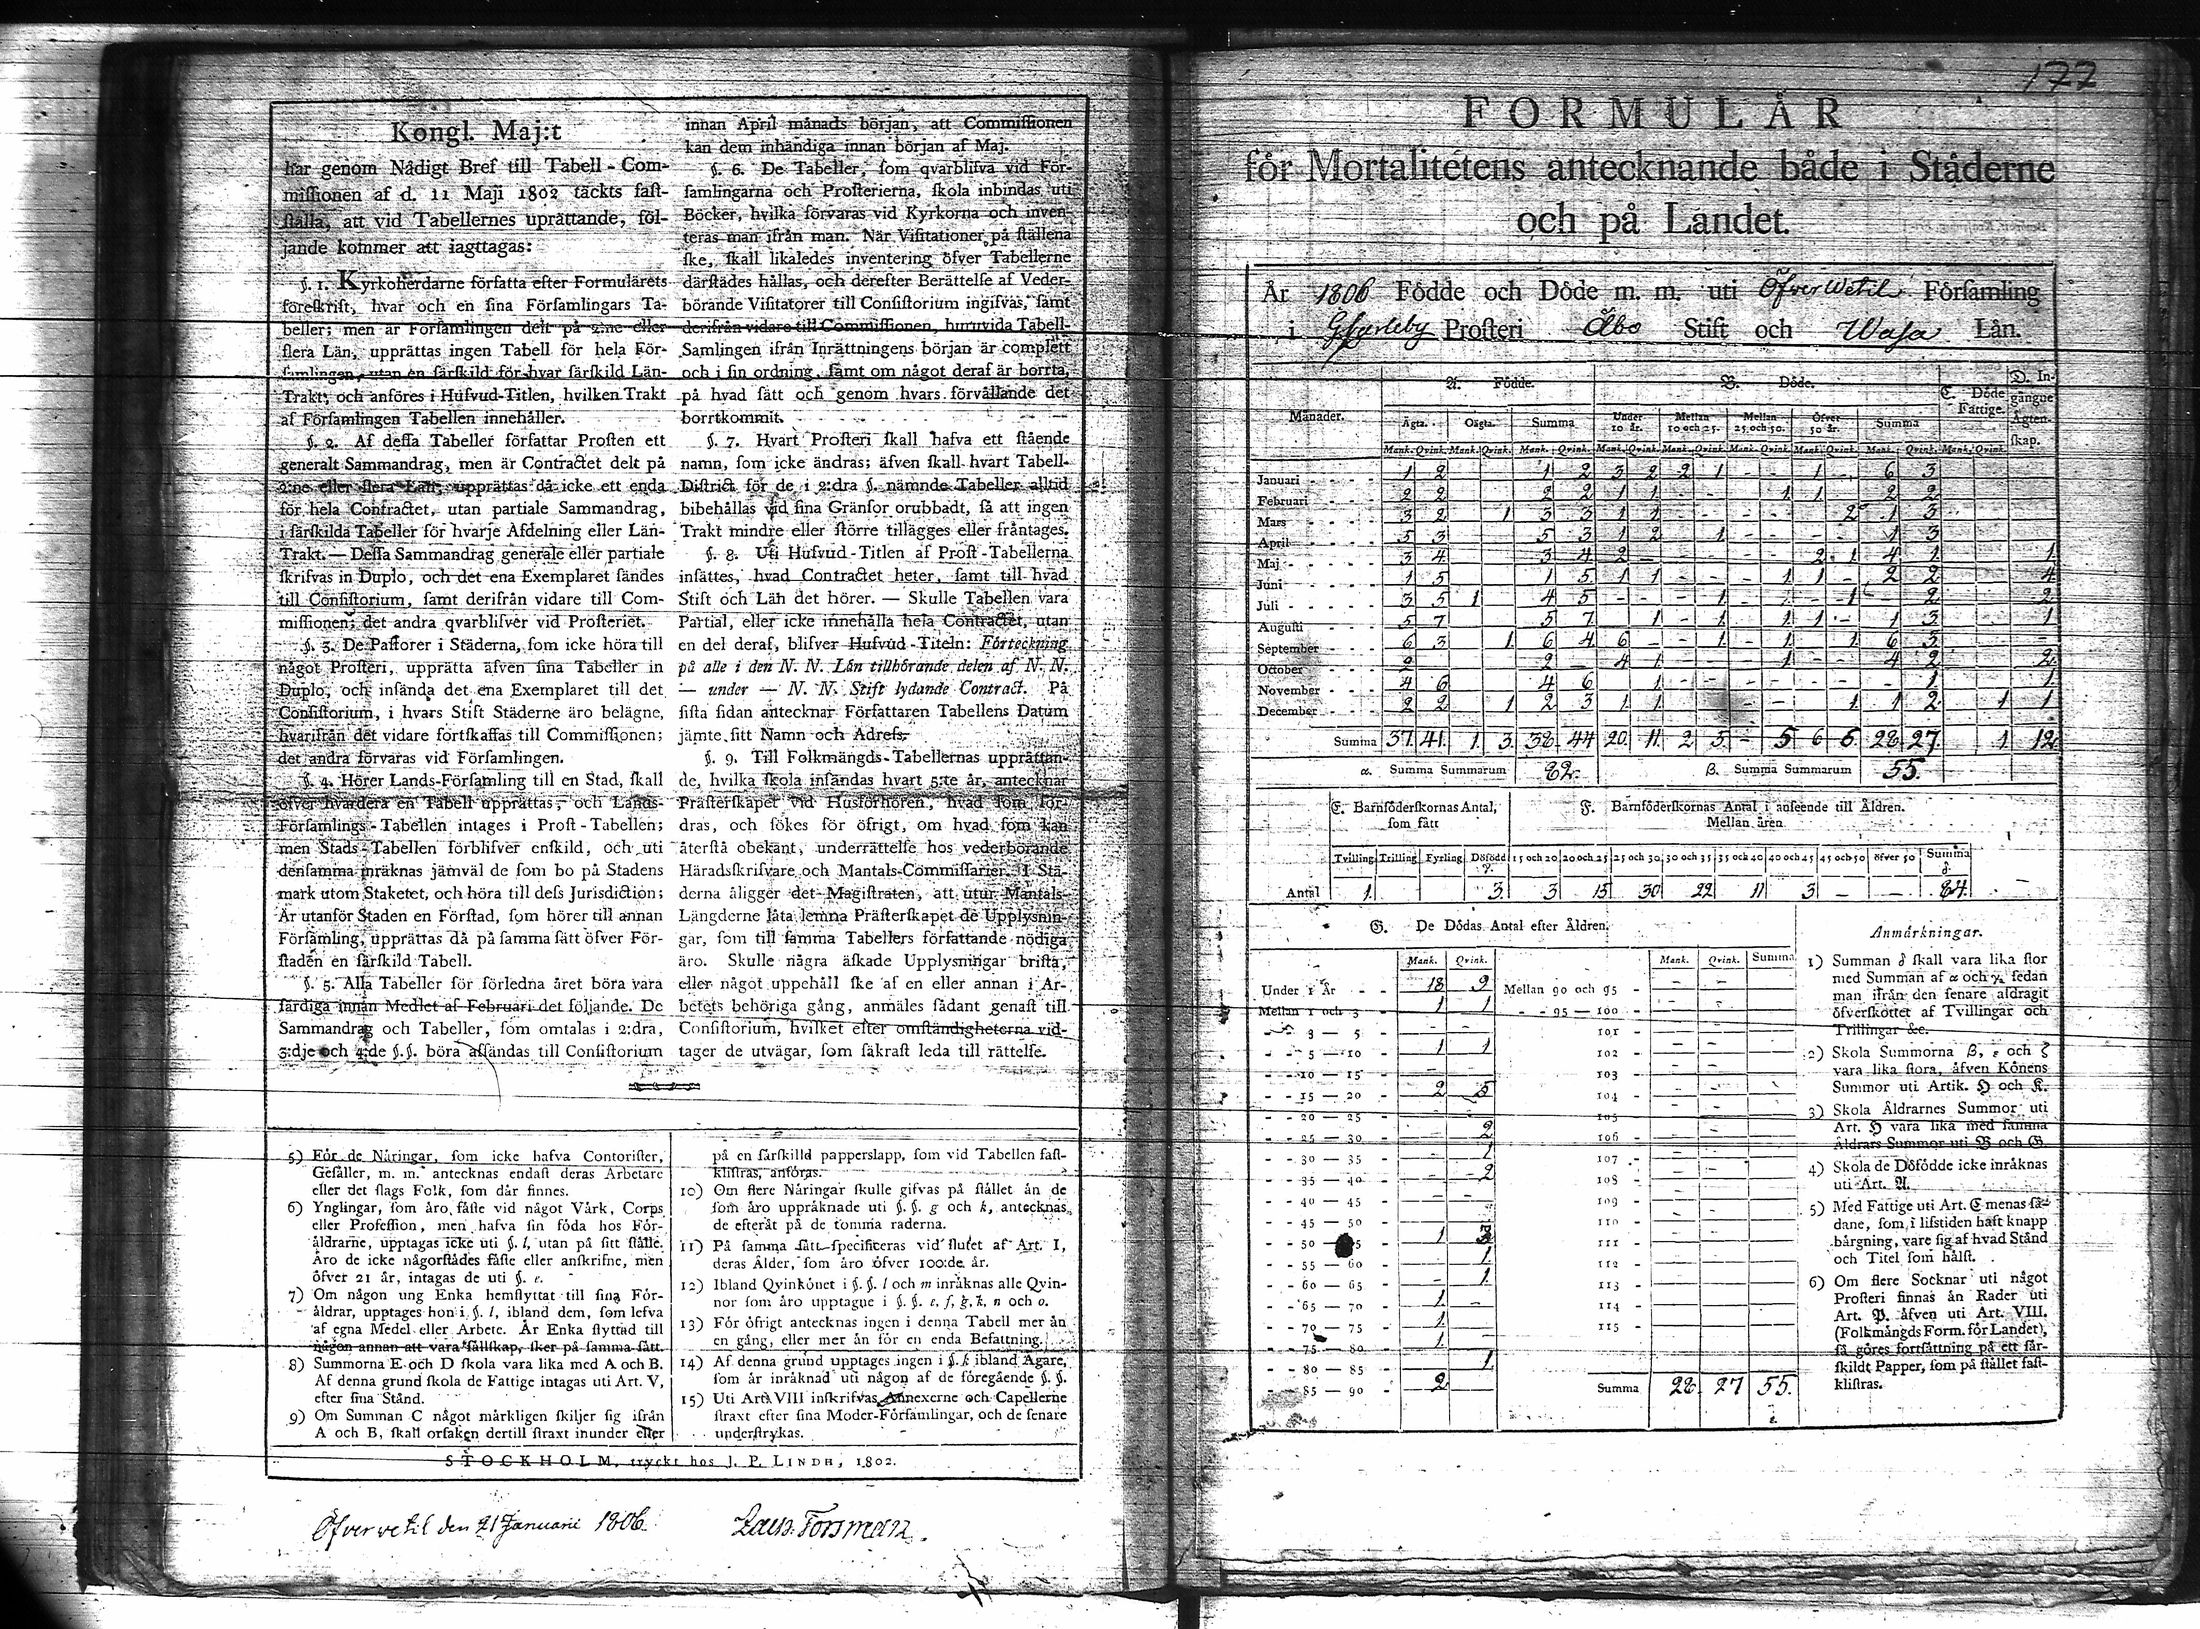 Kongl. Maj:t
har genom Nådigt Bref till Tabell-Com-
missionen af d. 11 Maji 1802 täckts fast-
ställa, att vid Tabellernes uprättande, föl-
jande kommer att iagttagas:
§. 1. Kyrkoherdarne författa efter Formulärets
föreskrift, hvar och en sina Församlingars Ta-
beller; men är Församlingen delt på 2:ne eller
flera Län, upprättas ingen Tabell för hela För-
samlingen, utan en särskild för hvar särskild Län-
Trakt, och anföres i Hufvud-Titlen, hvilken Trakt
af Församlingen Tabellen innehåller.
§. 2. Af dessa Tabeller författar Prosten ett
generalt Sammandrag, men är Contractet delt på
2:ne eller flera Län, upprättas då icke ett enda
för hela Contractet, utan partiale Sammandrag,
i särskilda Tabeller för hvarje Afdelning eller Län-
Trakt. — Dessa Sammandrag generale eller partiale
skrifvas in Duplo, och det ena Exemplaret sändes
till Consistorium, samt derifrån vidare till Com-
missionen; det andra qvarblifver vid Prosteriet.
§. 3. De Pastorer i Städerna, som icke höra till
något Prosteri, upprätta äfven sina Tabeller in
Duplo, och insända det ena Exemplaret till det
Consistorium, i hvars Stift Städerne äro belägne,
hvarifrån det vidare fortskaffas till Commissionen;
det andra förvaras vid Församlingen.
§. 4. Hörer Lands-Församling till en Stad, skall
öfver hvardera en Tabell upprättas, och Lands-
Församlings-Tabellen intages i Prost-Tabellen;
men Stads-Tabellen förblifver enskild, och uti
densamma inräknas jämväl de som bo på Stadens
mark utom Staketet, och höra till dess Jurisdiction;
Är utanför Staden en Förstad, som hörer till annan
Församling, upprättas då på samma sätt öfver För-
staden en särskild Tabell.
§. 5. Alla Tabeller för förledna året böra vara
färdiga innan Medlet af Februari det följande. De
Sammandrag och Tabeller, som omtalas i 2:dra,
3:dje och 4:de §.§. böra afsändas till Consistorium
innan April månads början, att Commissionen
kan dem inhändiga innan början af Maj.
§. 6. De Tabeller, som qvarblifva vid För-
samlingarna och Prosterierna, skola inbindas uti
Böcker, hvilka förvaras vid Kyrkorna och inven-
teras man ifrån man. När Visitationer på ställena
ske, skall likaledes inventering öfver Tabellerne
därstädes hållas, och derefter Berättelse af Veder-
börande Visitatorer till Consistorium ingifvas, samt
derifrån vidare till Commissionen, huruvida Tabell-
Samlingen ifrån Inrättningens början är complett
och i sin ordning, samt om något deraf är borrta,
på hvad sätt och genom hvars förvållande det
borrtkommit.
§. 7. Hvart Prosteri skall hafva ett stående
namn, som icke ändras; äfven skall hvart Tabell-
District för de i 2:dra §. nämnde Tabeller alltid
bibehållas vid sina Gränsor orubbadt, så att ingen
Trakt mindre eller större tillägges eller fråntages.
§. 8. Uti Hufvud-Titlen af Prost-Tabellerna
insättes, hvad Contractet heter, samt till hvad
Stift och Län det hörer. — Skulle Tabellen vara
Partial, eller icke innehålla hela Contractet, utan
en del deraf, blifver Hufvud-Titeln: Förteckning
på alle i den N. N. Län tillhörande delen af N. N.
— under — N. N. Stift lydande Contract. På
sista sidan antecknar Författaren Tabellens Datum
jämte sitt Namn och Adress.
§. 9. Till Folkmängds-Tabellernas upprättan-
de, hvilka skola insändas hvart 5:te år, antecknar
Prästerskapet vid Husförhören, hvad som for-
dras, och sökes för öfrigt, om hvad som kan
återstå obekant, underrättelse hos vederbörande
Häradsskrifvare och Mantals-Commissarier. I Stä-
derna åligger det Magistraten, att utur Mantals-
Längderne låta lemna Prästerskapet de Upplysnin-
gar, som till samma Tabellers författande nödiga
äro. Skulle några äskade Upplysningar brista,
eller något uppehåll ske af en eller annan i Ar-
betets behöriga gång, anmäles sådant genast till
Consistorium, hvilket efter omständigheterna vid-
tager de utvägar, som säkrast leda till rättelse.
5) För de Näringar, som icke hafva Contorister,
Gesäller, m. m. antecknas endast deras Arbetare
eller det slags Folk, som där finnes.
6) Ynglingar, som äro fäste vid något Värk, Corps
eller Profession, men hafva sin föda hos För-
äldrarne, upptagas icke uti §. l, utan på sitt ställe.
Äro de icke någorstädes fäste eller anskrifne, men
öfver 21 år, intagas de uti §. e.
7) Om någon ung Enka hemflyttat till sina För-
äldrar, upptages hon i §. l, ibland dem, som lefva
af egna Medel eller Arbete. Är Enka flyttad till
någon annan att vara sällskap, sker på samma sätt.
8) Summorna E och D skola vara lika med A och B.
Af denna grund skola de Fattige intagas uti Art. V,
efter sina Stånd.
9) Om Summan C något märkligen skiljer sig ifrån
A och B, skall orsaken dertill straxt inunder eller
på en särskilld papperslapp, som vid Tabellen fast-
klistras, anföras.
10) Om flere Näringar skulle gifvas på stället än de
som äro uppräknade uti §. §. g och k, antecknas
de efteråt på de tomma raderna.
11) På samma sätt specificeras vid slutet af Art. I,
deras Ålder, som äro öfver 100:de år.
12) Ibland Qvinkönet i §. §. l och m inräknas alle Qvin-
nor som äro upptagne i §. §. e, f, g, k, n och o.
13) För öfrigt antecknas ingen i denna Tabell mer än
en gång, eller mer än för en enda Befattning.
14) Af denna grund upptages ingen i §. k ibland Ägare,
som är inräknad uti någon af de föregående §. §.
15) Uti Art. VIII inskrifvas Annexerne och Capellerne
straxt efter sina Moder-Församlingar, och de senare
understrykas.
STOCKHOLM, tryckt hos J. P. LINDH, 1802.
Öfvervetil den 21 Januarii 1806.
Zach. Forsman.
177
FORMULÄR
för Mortalitetens antecknande både i Städerne
och på Landet.
År 1806 Födde och Döde m. m. uti Öfver Wetil Församling
i Gstarleby Prosteri Åbo Stift och Wasa Län.
Månader. A. Födde. B. Döde. C. Döde Fattige. D. Ingångne Ägtenskap.
Ägta. Oägta. Summa Under 10 år. Mellan 10 och 25. Mellan 25 och 50. Öfver 50 år. Summa
Mank. Qvink. Mank. Qvink. Mank. Qvink. Mank. Qvink. Mank. Qvink. Mank. Qvink. Mank. Qvink. Mank. Qvink. Mank. Qvink.
Januari 1 2 1 2 3 2 2 1 - - 1 - 6 3
Februari 2 2 2 2 1 1 - - - 1 1 - 2 2
Mars 3 2 1 3 3 1 1 - - - - - 2 1 3
April 5 3 5 3 1 2 - 1 - - - - 1 3
Maj 3 4 3 4 2 - - - - - 2 1 4 1 1
Juni 1 5 1 5 1 1 - - - 1 1 - 2 2 4
Juli 3 5 1 4 5 - - - 1 - - - 1 - 2 2
Augusti 5 7 5 7 - 1 - 1 - 1 1 - 1 3 1
September 6 3 1 6 4 6 - - 1 - 1 - 1 6 3 -
October 2 2 - 4 1 - - - 1 - - 4 2 2
November 4 6 4 6 - 1 - - - - - - - 1 1
December 2 2 1 2 3 1 1 - - - - 1 1 2 1 1
Summa 37. 41. 1. 3. 38. 44 20. 11. 2 5. - 5 6 6. 28. 27. 1 12
α. Summa Summarum 82. β. Summa Summarum 55.
E. Barnföderskornas Antal, som fått
F. Barnföderskornas Antal i anseende till Åldren.
Mellan åren
Tvilling Trilling Fyrling Dödfödd 15 och 20 20 och 25 25 och 30 30 och 35 35 och 40 40 och 45 45 och 50 öfver 50 Summa
Antal 1. 3. 3 15 30 22 11 3 - - 84.
G. De Dödas Antal efter Åldren.
Mank. Qvink. Mank. Qvink. Summa
Under 1 År 18 9 Mellan 90 och 95
Mellan 1 och 3 1 1 95 — 100
3 — 5 - - 101
5 — 10 1 1 102
10 — 15 - - 103
15 — 20 2 5 104
20 — 25 - - 105
25 — 30 2 106
30 — 35 1 107
35 — 40 2 108
40 — 45 - - 109
45 — 50 - - 110
50 — 55 1 3 111
55 — 60 1. 112
60 — 65 - 1. 113
65 — 70 1. - 114
70 — 75 1. 115
75 — 80 1. -
80 — 85 1.
85 — 90 2 Summa 28. 27 55.
Anmärkningar.
1) Summan δ skall vara lika stor
med Summan af α och γ, sedan
man ifrån den senare afdragit
öfverskottet af Tvillingar och
Trillingar &c.
2) Skola Summorna β, ε och ζ
vara lika stora, äfven Könens
Summor uti Artik. H och K.
3) Skola Åldrarnes Summor uti
Art. H vara lika med samma
Åldrars Summor uti B och G.
4) Skola de Döfödde icke inräknas
uti Art. A.
5) Med Fattige uti Art. C menas så-
dane, som i lifstiden haft knapp
bärgning, vare sig af hvad Stånd
och Titel som hälst.
6) Om flere Socknar uti något
Prosteri finnas än Rader uti
Art. P. äfven uti Art. VIII.
(Folkmängds Form. för Landet),
så göres fortsättning på ett sär-
skildt Papper, som på stället fast-
klistras.